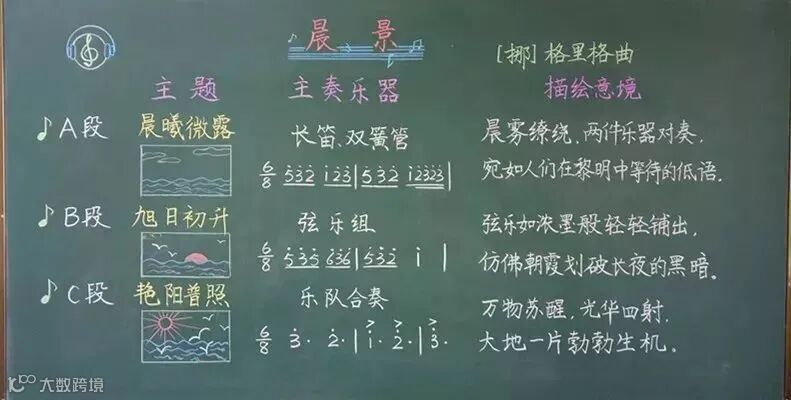 晨 景
[挪] 格里格曲
主题 主奏乐器 描绘意境
A段 晨曦微露 长笛、双簧管 晨雾缭绕,两件乐器对奏,
6/8 532 123|532 12323| 宛如人们在黎明中等待的低语.
B段 旭日初升 弦乐组 弦乐如浓墨般轻轻铺出,
6/8 535 636|532 i | 仿佛朝霞划破长夜的黑暗。
C段 艳阳普照 乐队合奏 万物苏醒,光华四射,
6/8 3. 2.|1. 2.|3. 大地一片勃勃生机。
大数跨境